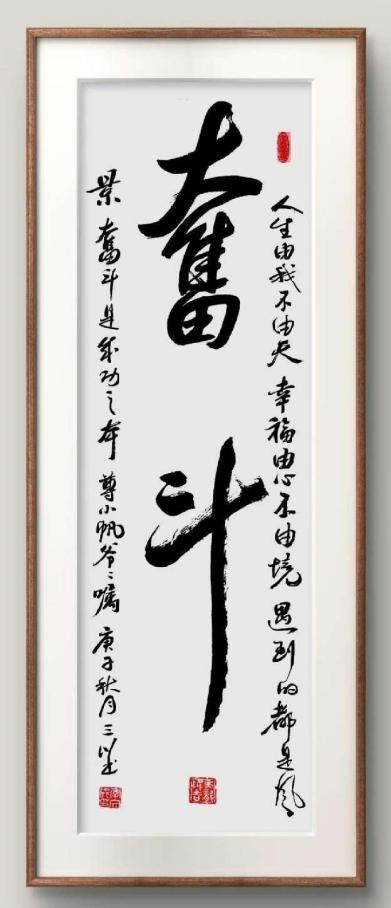 人生由我不由天 幸福由心不由境 遇到的都是风
奮斗
景 奮斗是成功之本 尊小帆爷〻嘱 庚子秋月三